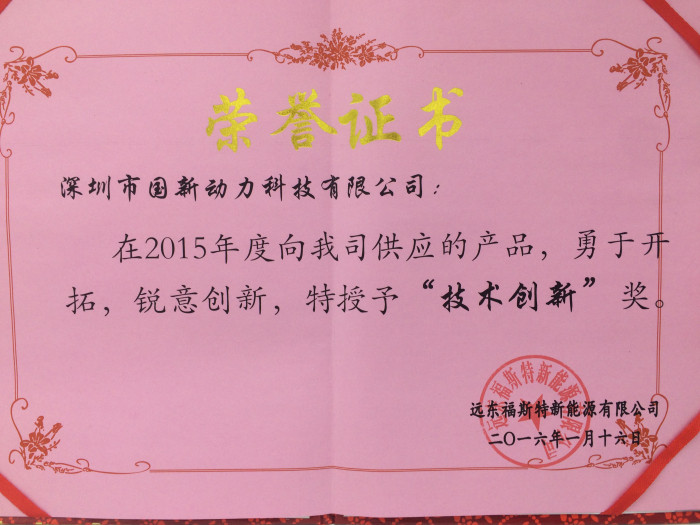 荣誉证书
深圳市国新动力科技有限公司：
在2015年度向我司供应的产品，勇于开
拓，锐意创新，特授予“技术创新”奖。
远东福斯特新能源有限公司
二〇一六年一月十六日
远东福斯特新能源有限公司